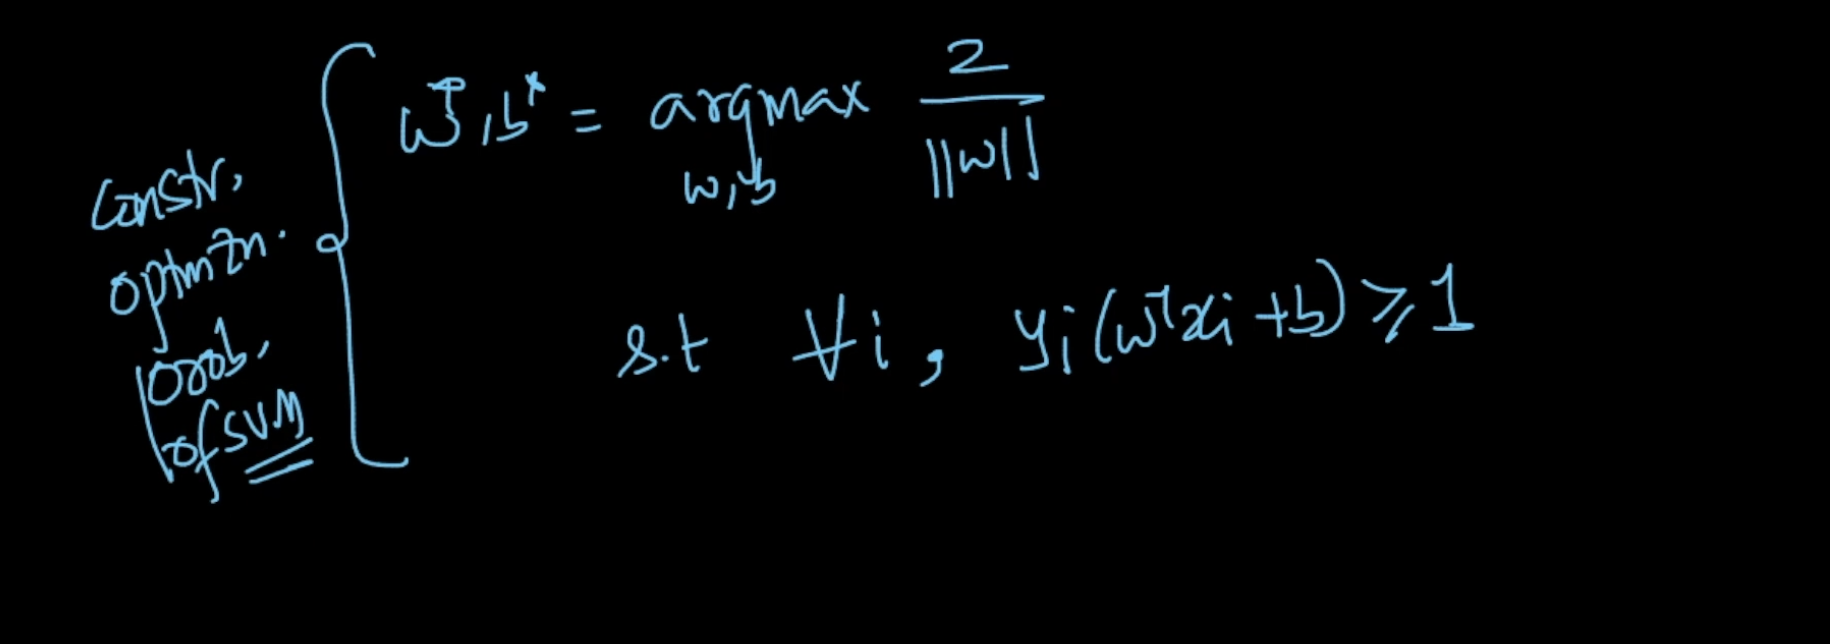 Constr.
optmzn.
prob.
of SVM
w*, b* = argmax 2 / ||w||
w, b
s.t ∀i, yi(wᵀxi + b) ≥ 1